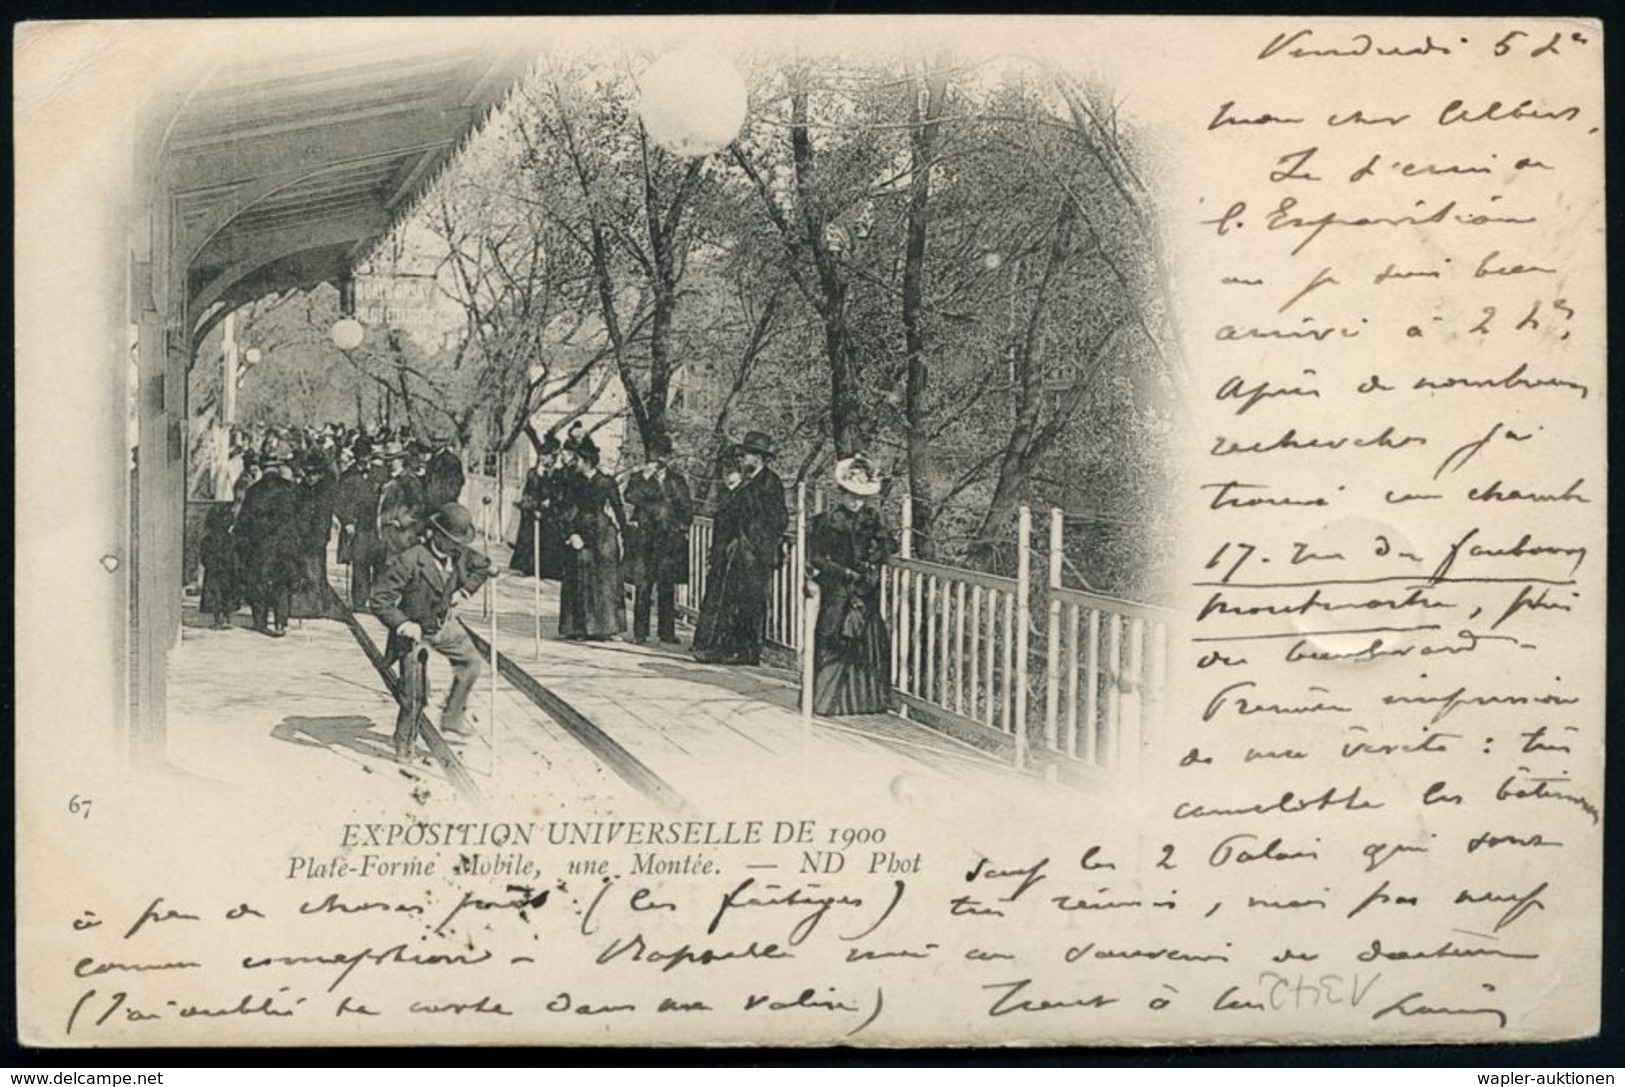 Vendredi 5 h<sup>es</sup>
Mon cher Albert,
Je t'écris de
l'Exposition
où je suis bien
arrivé à 2 h<sup>es</sup>,
Après de nombreuses
recherches j'ai
trouvé une chambre
17. rue du faubourg
Montmartre, près
du boulevard -
Première impression
de mes visite : très
camelotte les bâtiments
sauf les 2 Palais qui sont
à peu de choses près (les feuitages) très réussis, mais pas neufs
comme conception - Rappelle moi au souvenir du docteur
(J'ai oublié ta carte dans ma valise) Tout à toi
Louis
67
EXPOSITION UNIVERSELLE DE 1900
Plate-Forme Mobile, une Montée. — ND Phot
delcampe.net
wapler-auktionen